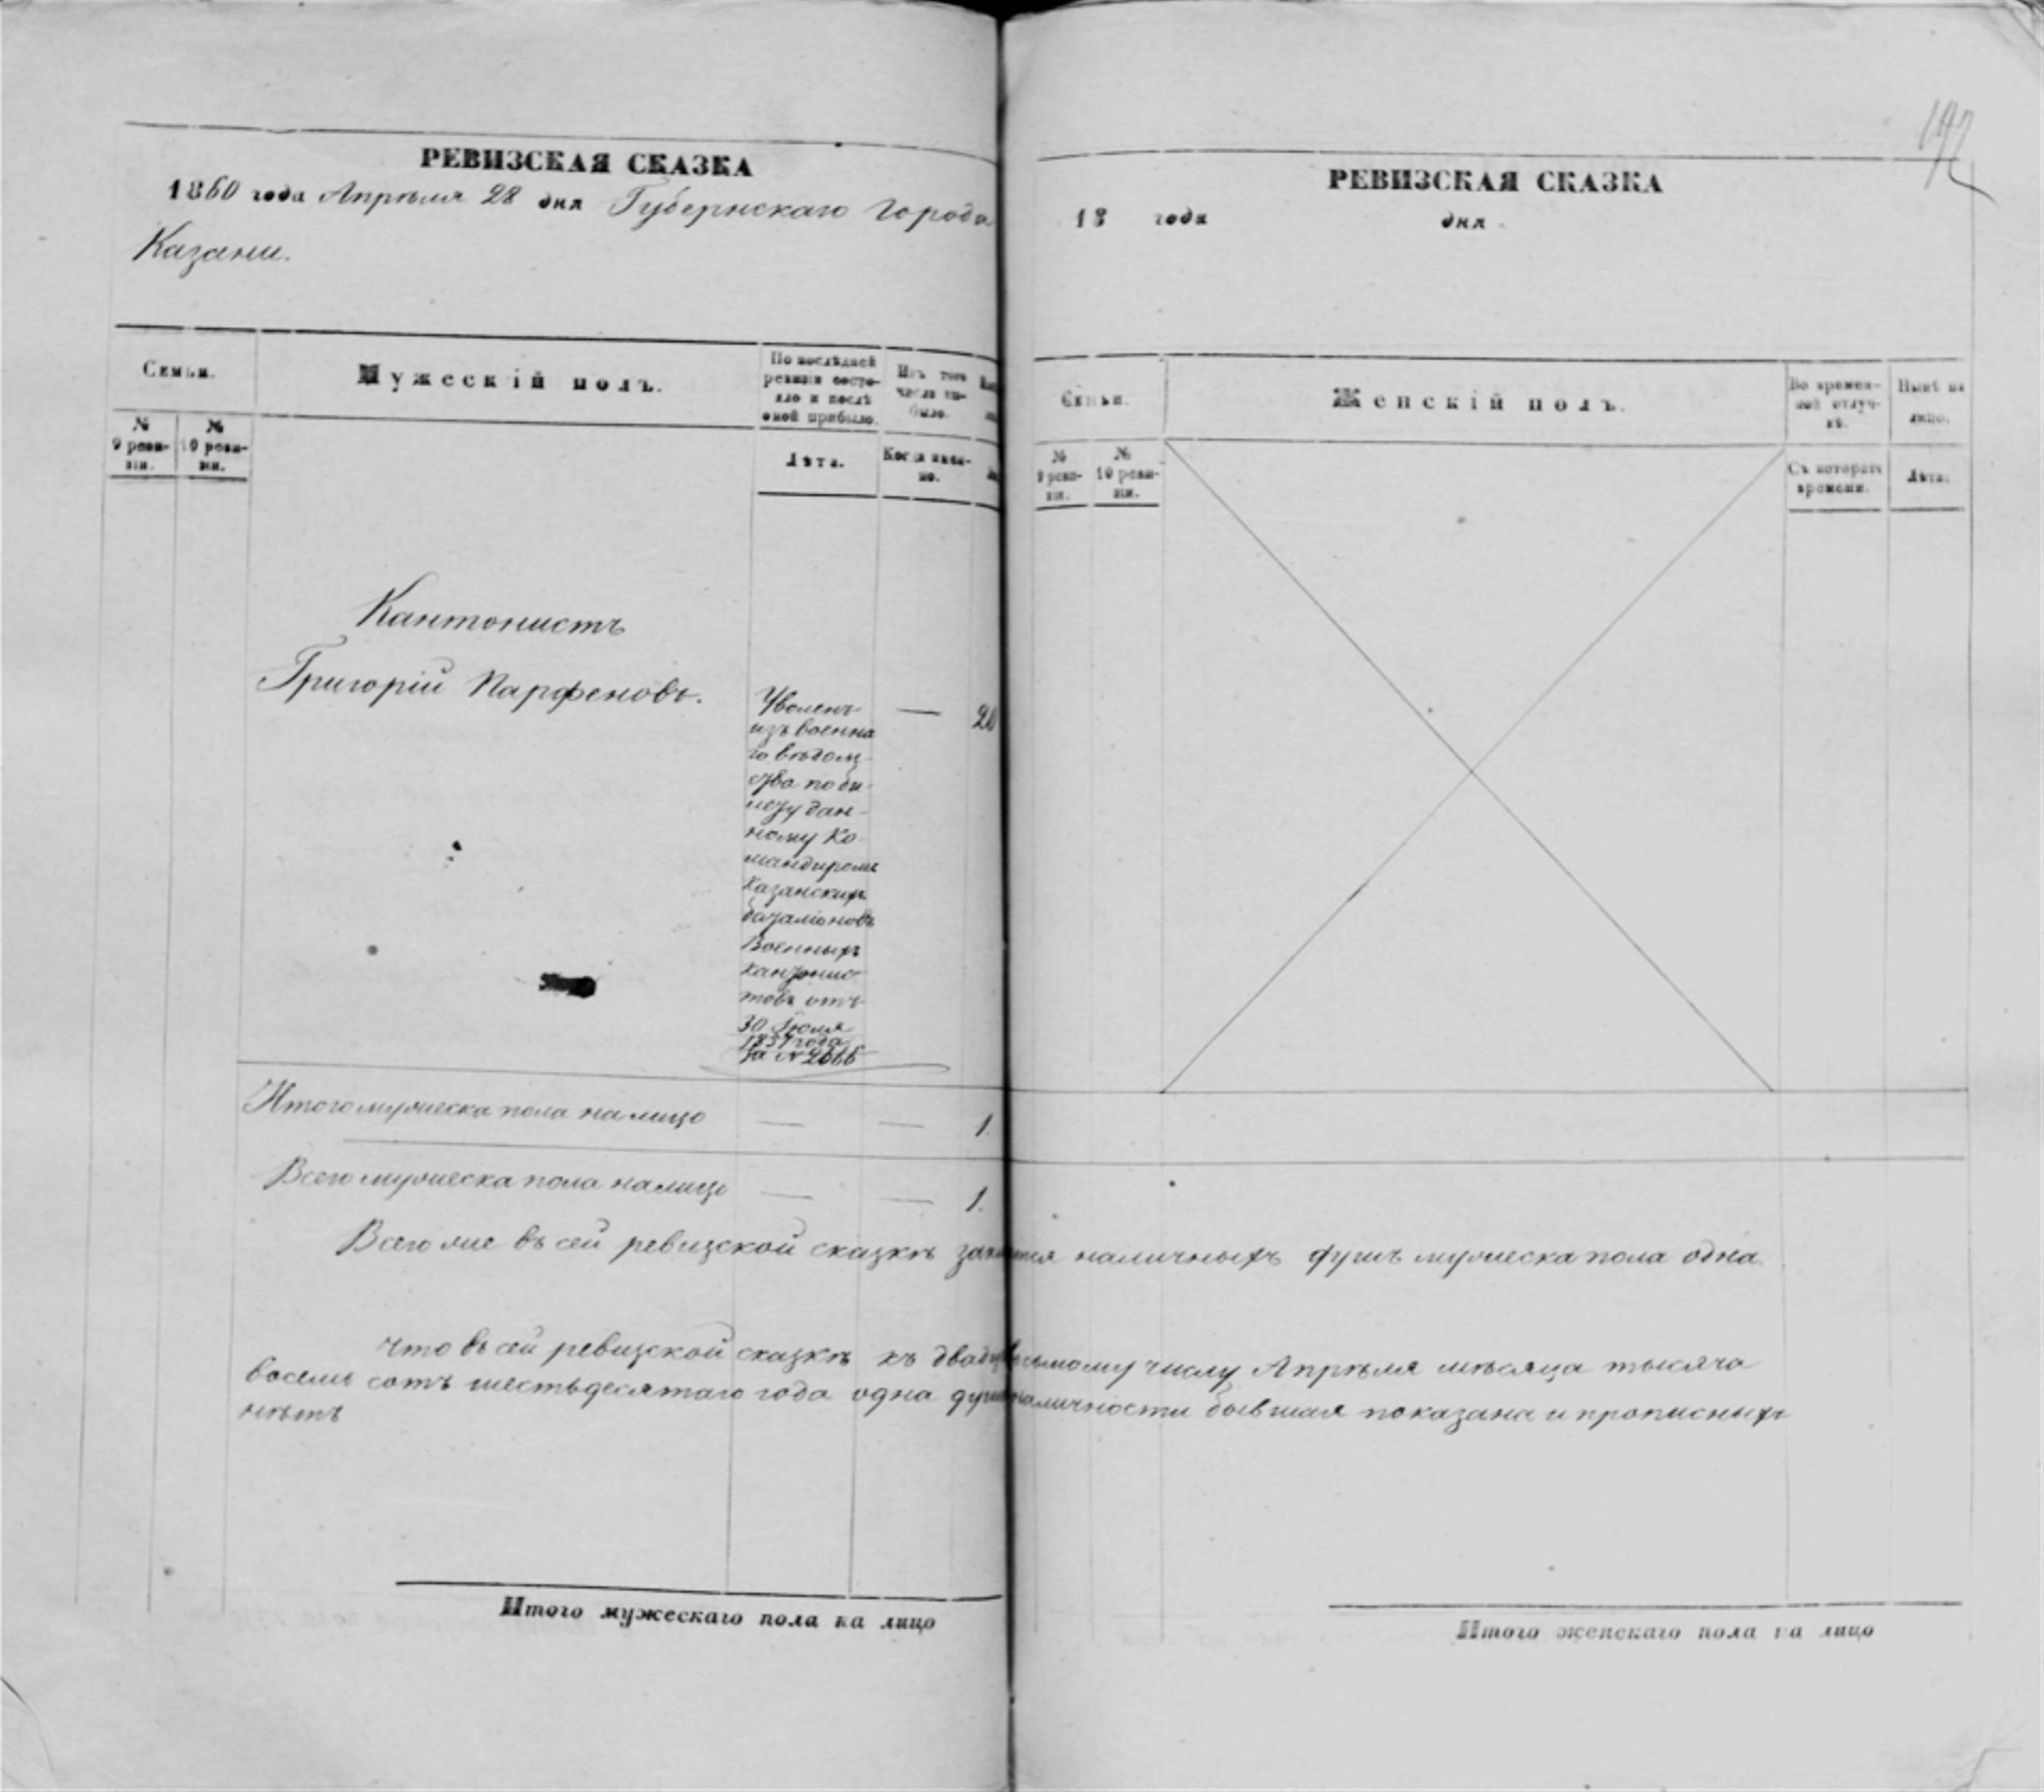 РЕВИЗСКАЯ СКАЗКА
1860 года Апрѣля 28 дня Губернскаго Города
Казани.
Семьи.
Мужескій полъ.
По послѣдней
ревизіи состо-
яло и послѣ
оной прибыло.
Изъ того
числа вы-
было.
№
9 реви-
зіи.
№
10 реви-
зіи.
Лѣта.
Когда имен-
но.
Кантонистъ
Григорій Парфеновъ.
Уволенъ
изъ военна
го вѣдом
ства по би
лету дан-
ному Ко
мандиромъ
Казанскихъ
баталіоновъ
Военныхъ
кантонис
товъ отъ
30 Іюля
1857 года
за №
—
20
Итого мужеска пола на лицо — — 1.
Всего мужеска пола на лицо — — 1.
Всего же въ сей ревизской сказкѣ наличныхъ душъ мужеска пола одна.
Что въ сей ревизской сказкѣ къ числу Апрѣля мѣсяца тысяча
восемь сотъ шестьдесятаго года одна наличности бывшая показана и прописныхъ
нѣтъ
Итого мужескаго пола на лицо
РЕВИЗСКАЯ СКАЗКА
18 года дня
Семьи.
Женскій полъ.
Во времен-
ной отлуч-
кѣ.
Нынѣ на
лицо.
№
9 реви-
зіи.
№
10 реви-
зіи.
Съ котораго
времени.
Лѣта.
Итого женскаго пола на лицо